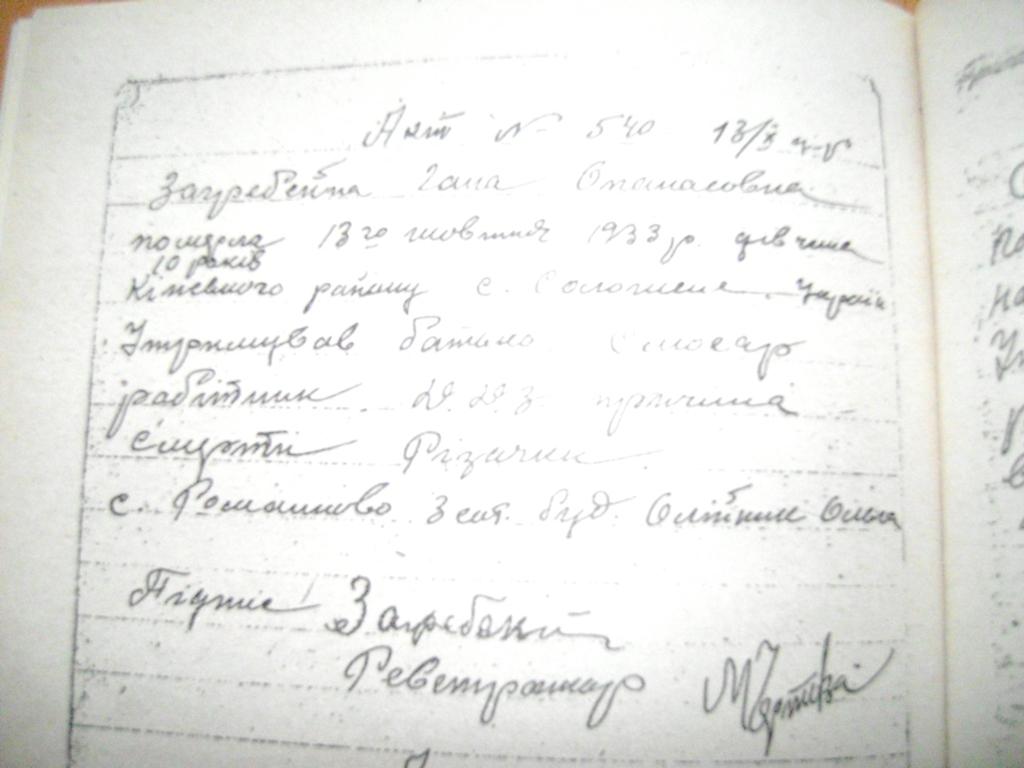 Акт № 540 13/X ц-р
Загребейна Гана Опанасовна
померла 13го жовтня 1933 р. дівчина
10 років
Кіївського району с. Соломенка Україн
Утримував батько Слюсар
робітник причина
смерти Різачки
с. Романково Зсат. буд. Олійник Ольга
Підпис Загребекій
Ревстратор